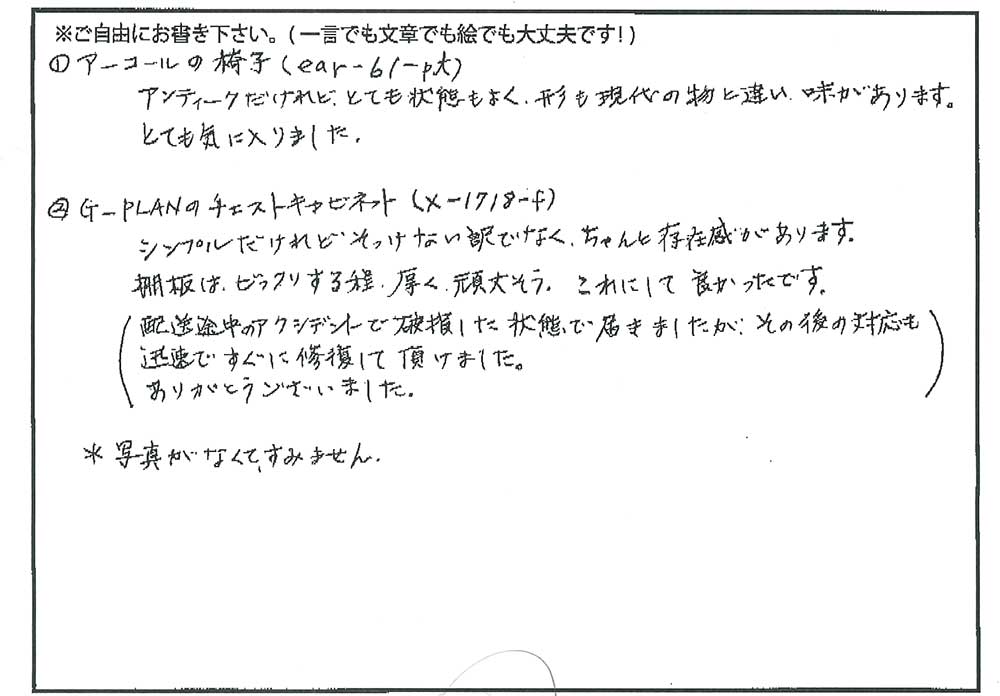 ※ご自由にお書き下さい。(一言でも文章でも絵でも大丈夫です！)
① アーコールの椅子(ear-61-pt)
アンティークだけれど、とても状態もよく、形も現代の物と違い、味があります。
とても気に入りました。
② G-PLANのチェストキャビネット(x-1718-f)
シンプルだけれどそっけない訳でなく、ちゃんと存在感があります。
棚板は、ビックリする程、厚く、頑丈そう。これにして良かったです。
(配送途中のアクシデントで破損した状態で届きましたが、その後の対応も
迅速ですぐに修復して頂けました。
ありがとうございました。)
＊写真がなくて、すみません。